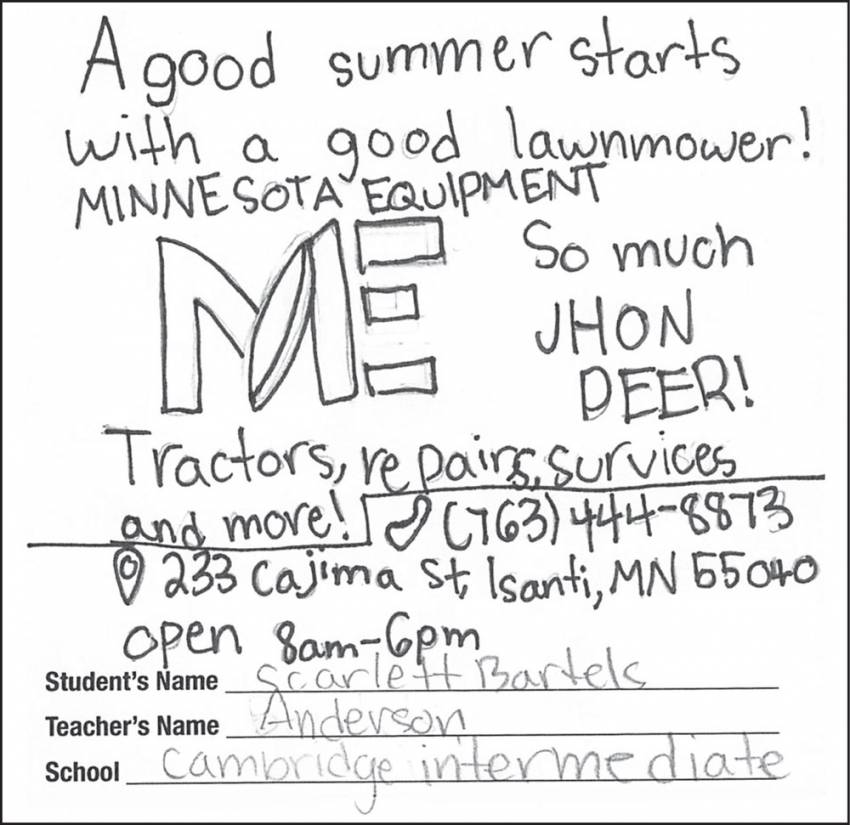 A good summer starts
with a good lawnmower!
MINNESOTA EQUIPMENT
ME
So much
JHON
DEER!
Tractors, repairs, survices
and more!
(763) 444-8873
233 Cajima St, Isanti, MN 55040
open 8am-6pm
Student's Name Scarlett Bartels
Teacher's Name Anderson
School Cambridge intermediate